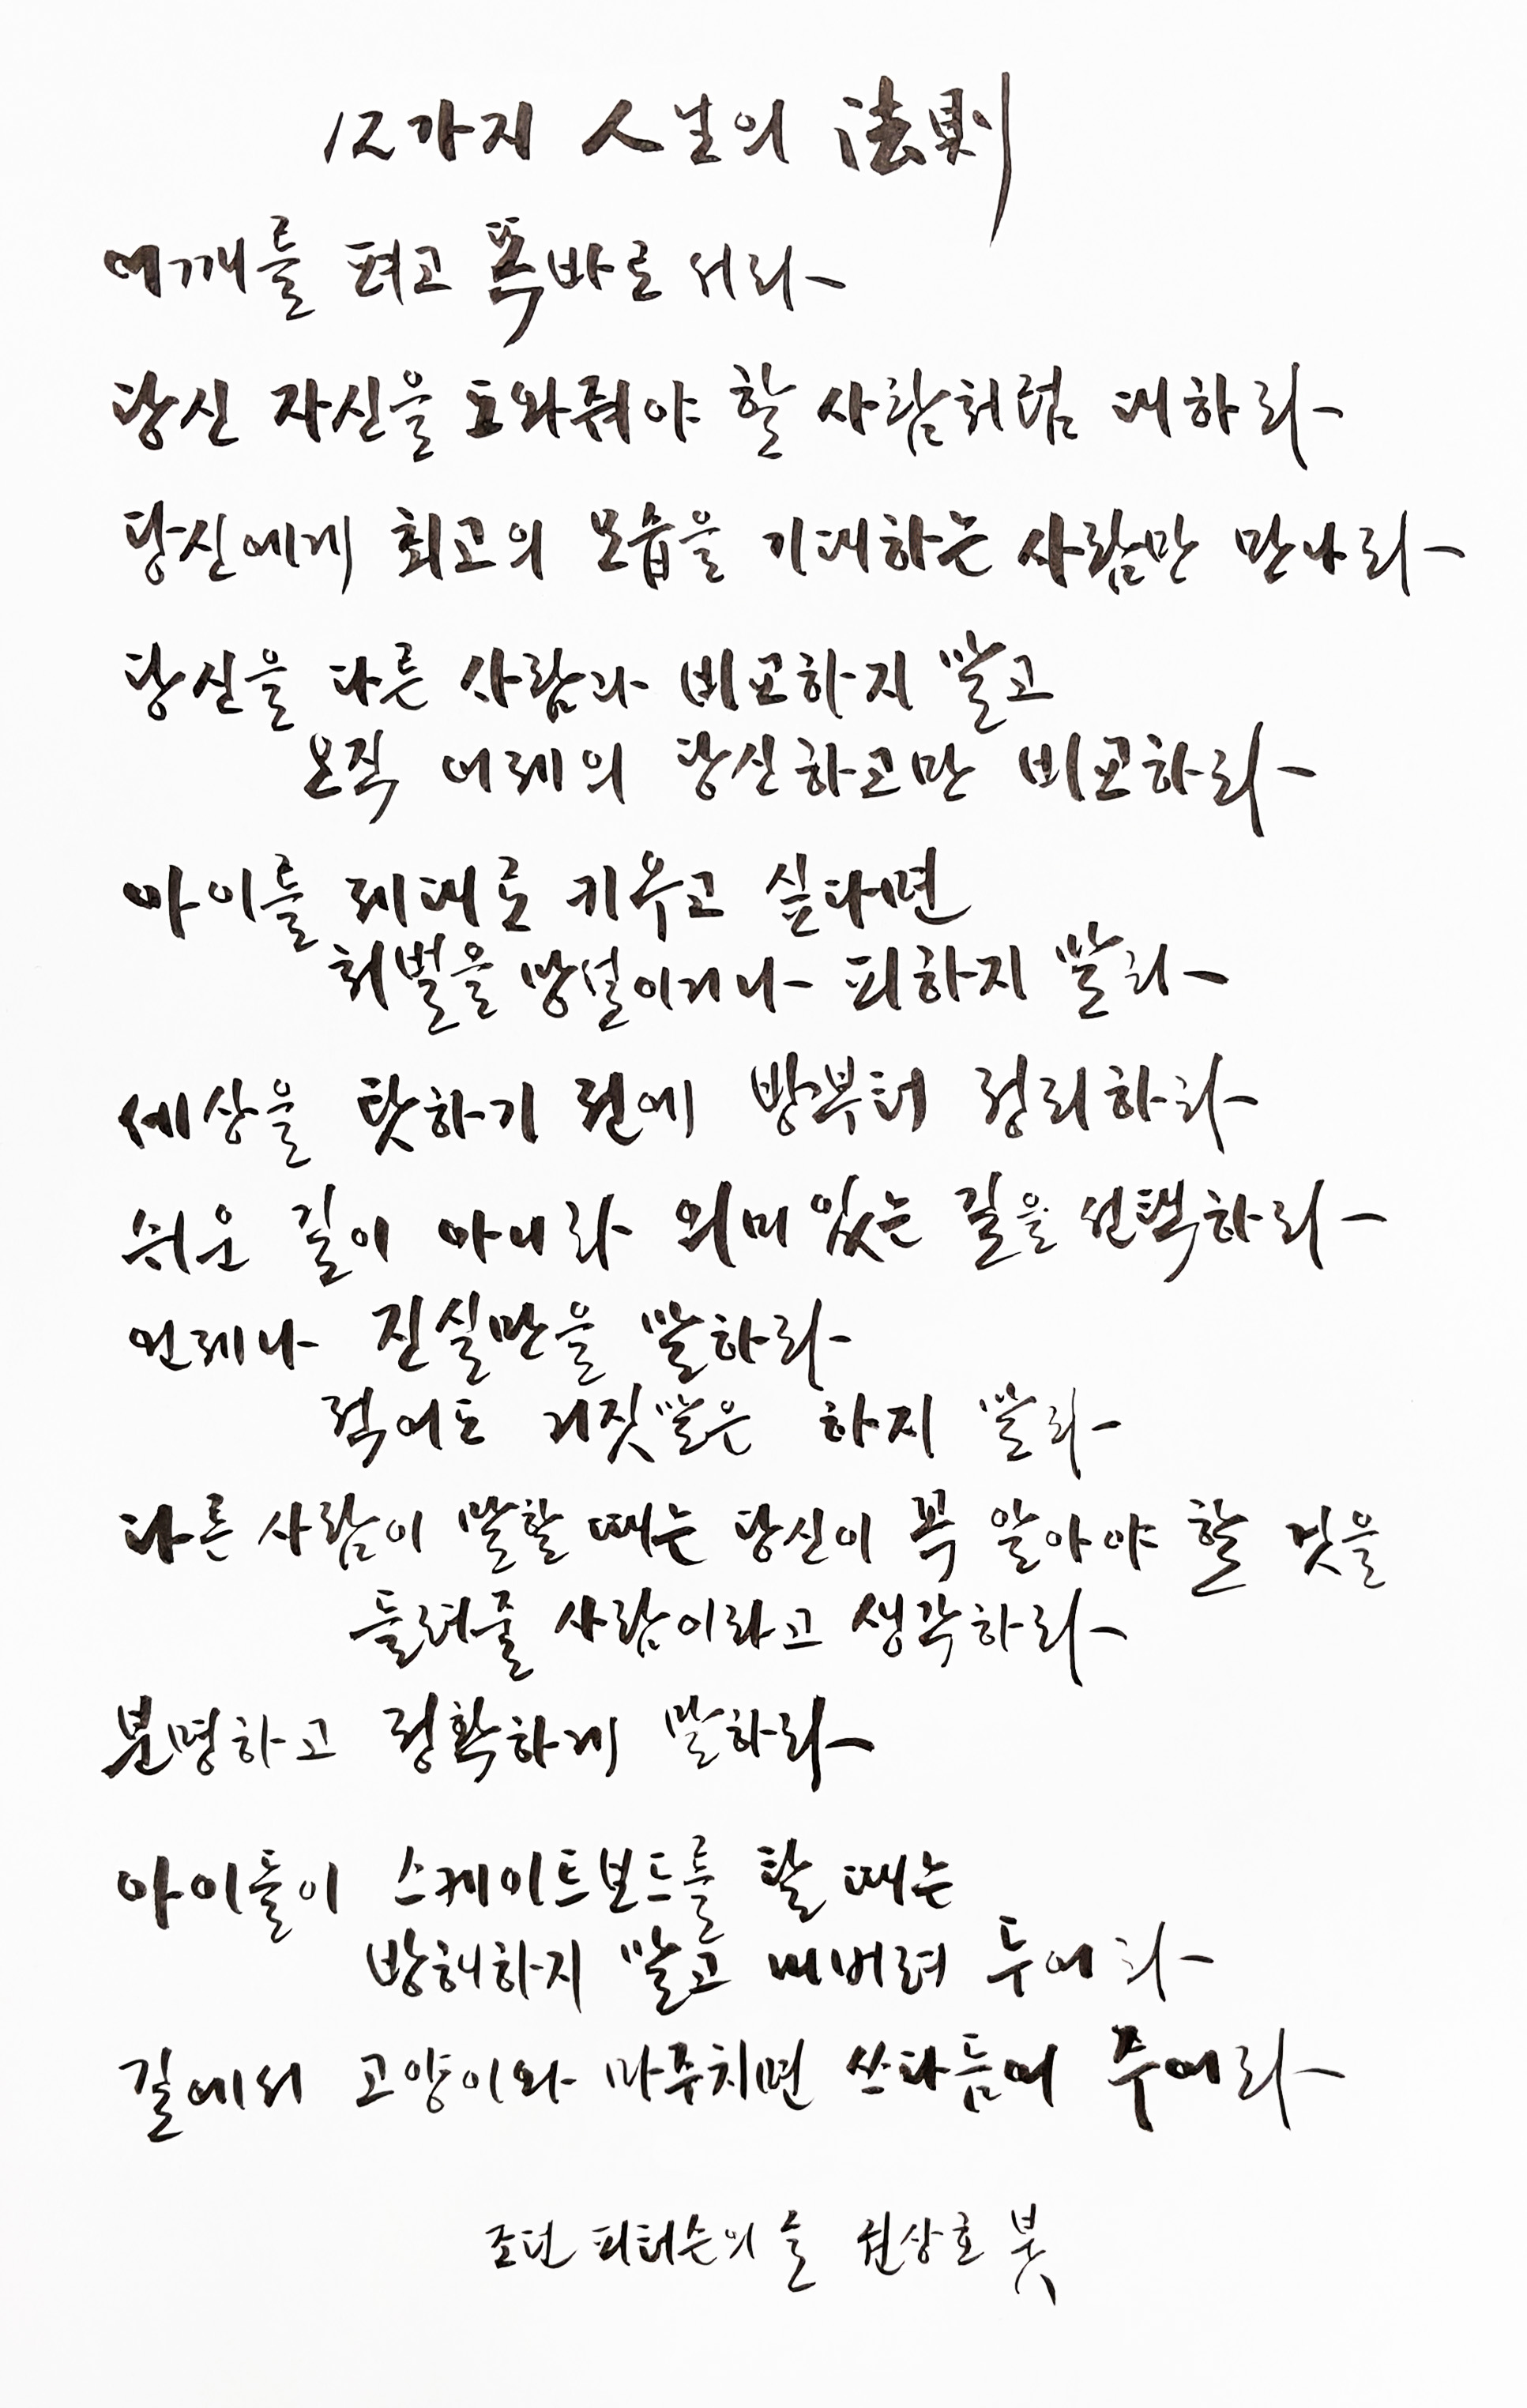 12가지 人生의 法則
어깨를 펴고 똑바로 서라
당신 자신을 도와줘야 할 사람처럼 대하라
당신에게 최고의 모습을 기대하는 사람만 만나라
당신을 다른 사람과 비교하지 말고
오직 어제의 당신하고만 비교하라
아이를 제대로 키우고 싶다면
처벌을 망설이거나 피하지 말라
세상을 탓하기 전에 방부터 정리하라
쉬운 길이 아니라 의미 있는 길을 선택하라
언제나 진실만을 말하라
적어도 거짓말은 하지 말라
다른 사람이 말할 때는 당신이 꼭 알아야 할 것을
들려줄 사람이라고 생각하라
분명하고 정확하게 말하라
아이들이 스케이트보드를 탈 때는
방해하지 말고 내버려 두어라
길에서 고양이와 마주치면 쓰다듬어 주어라
조던 피터슨의 글 권상호 붓